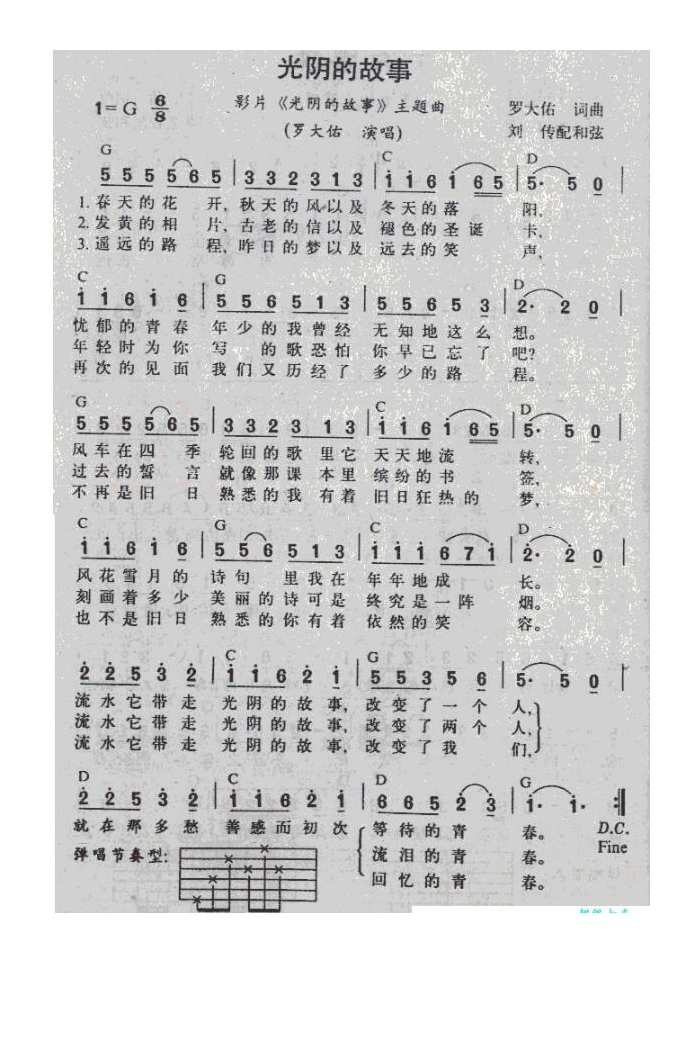 光阴的故事
1=G 6/8 影片《光阴的故事》主题曲 罗大佑 词曲
(罗大佑 演唱) 刘 传配和弦
G C D
5 5 5 5 6 5 | 3 3 2 3 1 3 | i i 6 i 6 5 | 5· 5 0 |
1. 春天的花 开, 秋天的风以及 冬天的落 阳,
2. 发黄的相 片, 古老的信以及 褪色的圣诞 卡,
3. 遥远的路 程, 昨日的梦以及 远去的笑 声,
C G D
i i 6 i 6 | 5 5 6 5 1 3 | 5 5 6 5 3 | 2· 2 0 |
忧郁的青春 年少的我曾经 无知地这么 想。
年轻时为你 写 的歌恐怕 你早已忘了 吧?
再次的见面 我们又历经了 多少的路 程。
G C D
5 5 5 5 6 5 | 3 3 2 3 1 3 | i i 6 i 6 5 | 5· 5 0 |
风车在四 季 轮回的歌 里它 天天地流 转,
过去的誓 言 就像那课 本里 缤纷的书 签,
不再是旧 日 熟悉的我 有着 旧日狂热的 梦,
C G C D
i i 6 i 6 | 5 5 6 5 1 3 | i i i 6 7 i | 2· 2 0 |
风花雪月的 诗句 里我在 年年地成 长。
刻画着多少 美丽的诗可是 终究是一阵 烟。
也不是旧日 熟悉的你有着 依然的笑 容。
C G
2 2 5 3 2 | i i 6 2 i | 5 5 3 5 6 | 5· 5 0 |
流水它带走 光阴的故 事, 改变了一个 人,
流水它带走 光阴的故 事, 改变了两个 人,
流水它带走 光阴的故 事, 改变了我 们,
D C D G
2 2 5 3 2 | i i 6 2 i | 6 6 5 2 3 | i· i· :||
就在那多愁 善感而初次 等待的青 春。 D.C.
弹唱节奏型: 流泪的青 春。 Fine
回忆的青 春。